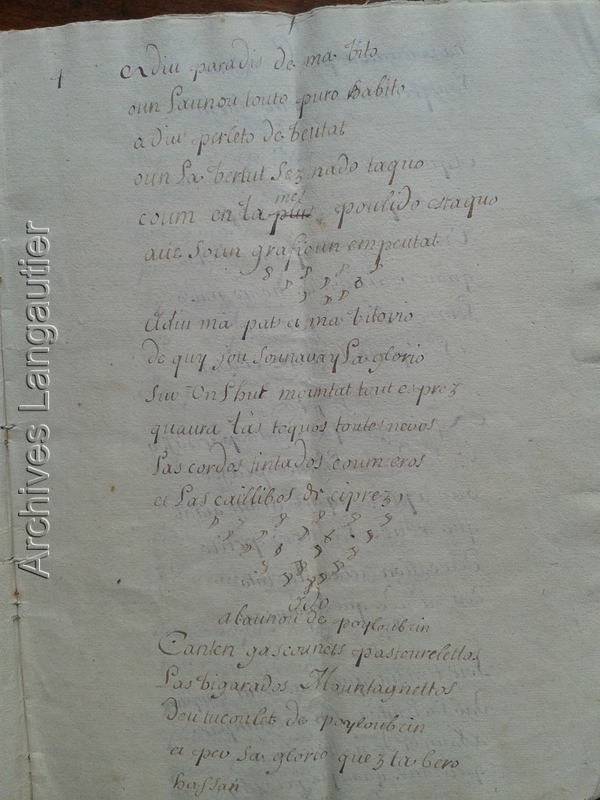 1
Adiu paradis de ma bito
oun Launou touto puro habito
adiu perleto de beutat
oun La bertut Sez nado taquo
coum en la mes poulido estaquo
aüe Soun grafioun empeutat
Adiu ma pats a ma bitorio
de quy jou Sounavay La glorio
Sur Un Lhut mountat tout esprez
quaura las toquos toutes nevos
Las cordos tintados coum eros
et Las caillibos de ciprez
Odo
a Launou de poyloubrin
Canten gascounets pastourelettos
Las bigarados Mountagnettos
dou tucoulet de poyloubrin
et per Sa glorio quez ta bero
hassan
Archives Langautier